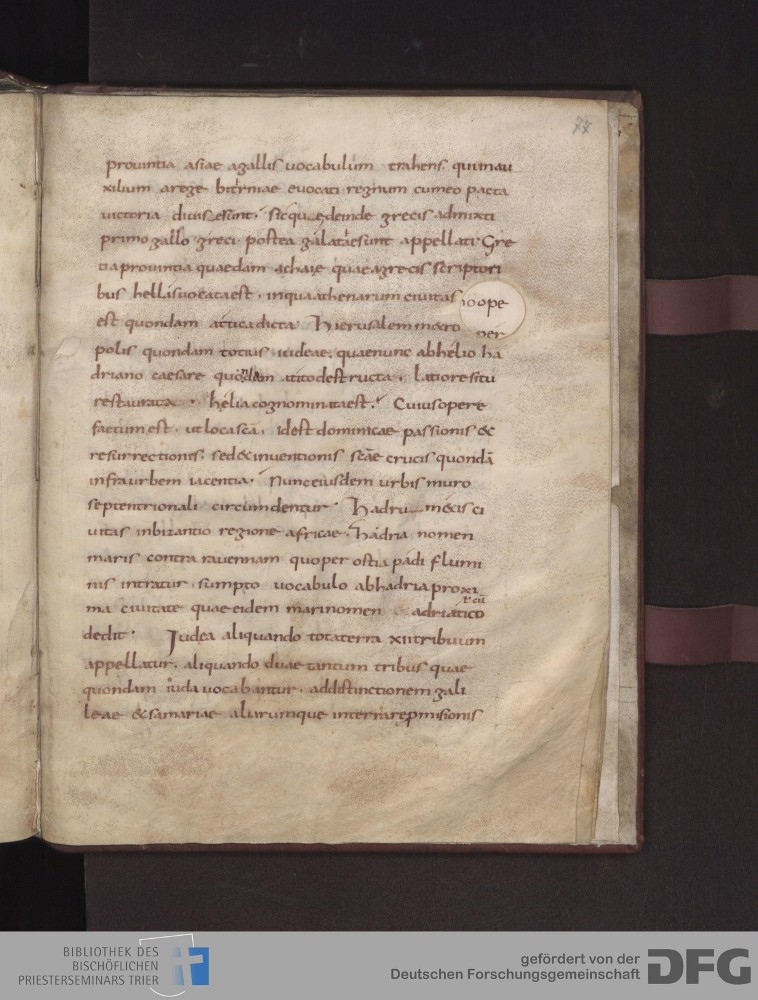 77
prouintia asiae agallis uocabulum trahens. quiinau
xilium arege bitɦniae euocati regnum cumeo pacta
uictoria diuiserunt. sicque deinde grecis admixti
primo gallo greci. postea galatae sunt appellati Gre
tia prouintia quaedam achaie quae agrecis scriptori
bus hellas uocata est. inqua athenarum ciuitas
est quondam actica dicta Hierusalem metro
polis quondam totius iudeae. quae nunc abhelio ha
driano caesare quondam atito destructa. latiore situ
restaurata. helia cognominata est. Cuius opere
factum est. ut loca scā. idest dominicae passionis &
resurrectionis. sed & inuentionis scāe crucis quondā
infra urbem iacentia. Nunc eiusdem urbis muro
septentrionali circumdentur. Hadrumecis ci
uitas inbizantio regione africae. Hadria nomen
maris contra rauennam quoper ostia padi flumi
nis intratur. sumpto uocabulo abhadria proxi
ma ciuitate quae eidem mari nomen adriatico
dedit. Iudea aliquando tota terra xii tribuum
appellatur. aliquando duae tantum tribus quae
quondam iuda uocabantur. addistinctionem gali
leae & samariae aliarumque interra repmisionis
BIBLIOTHEK DES
BISCHÖFLICHEN
PRIESTERSEMINARS TRIER
gefördert von der
Deutschen Forschungsgemeinschaft
DFG